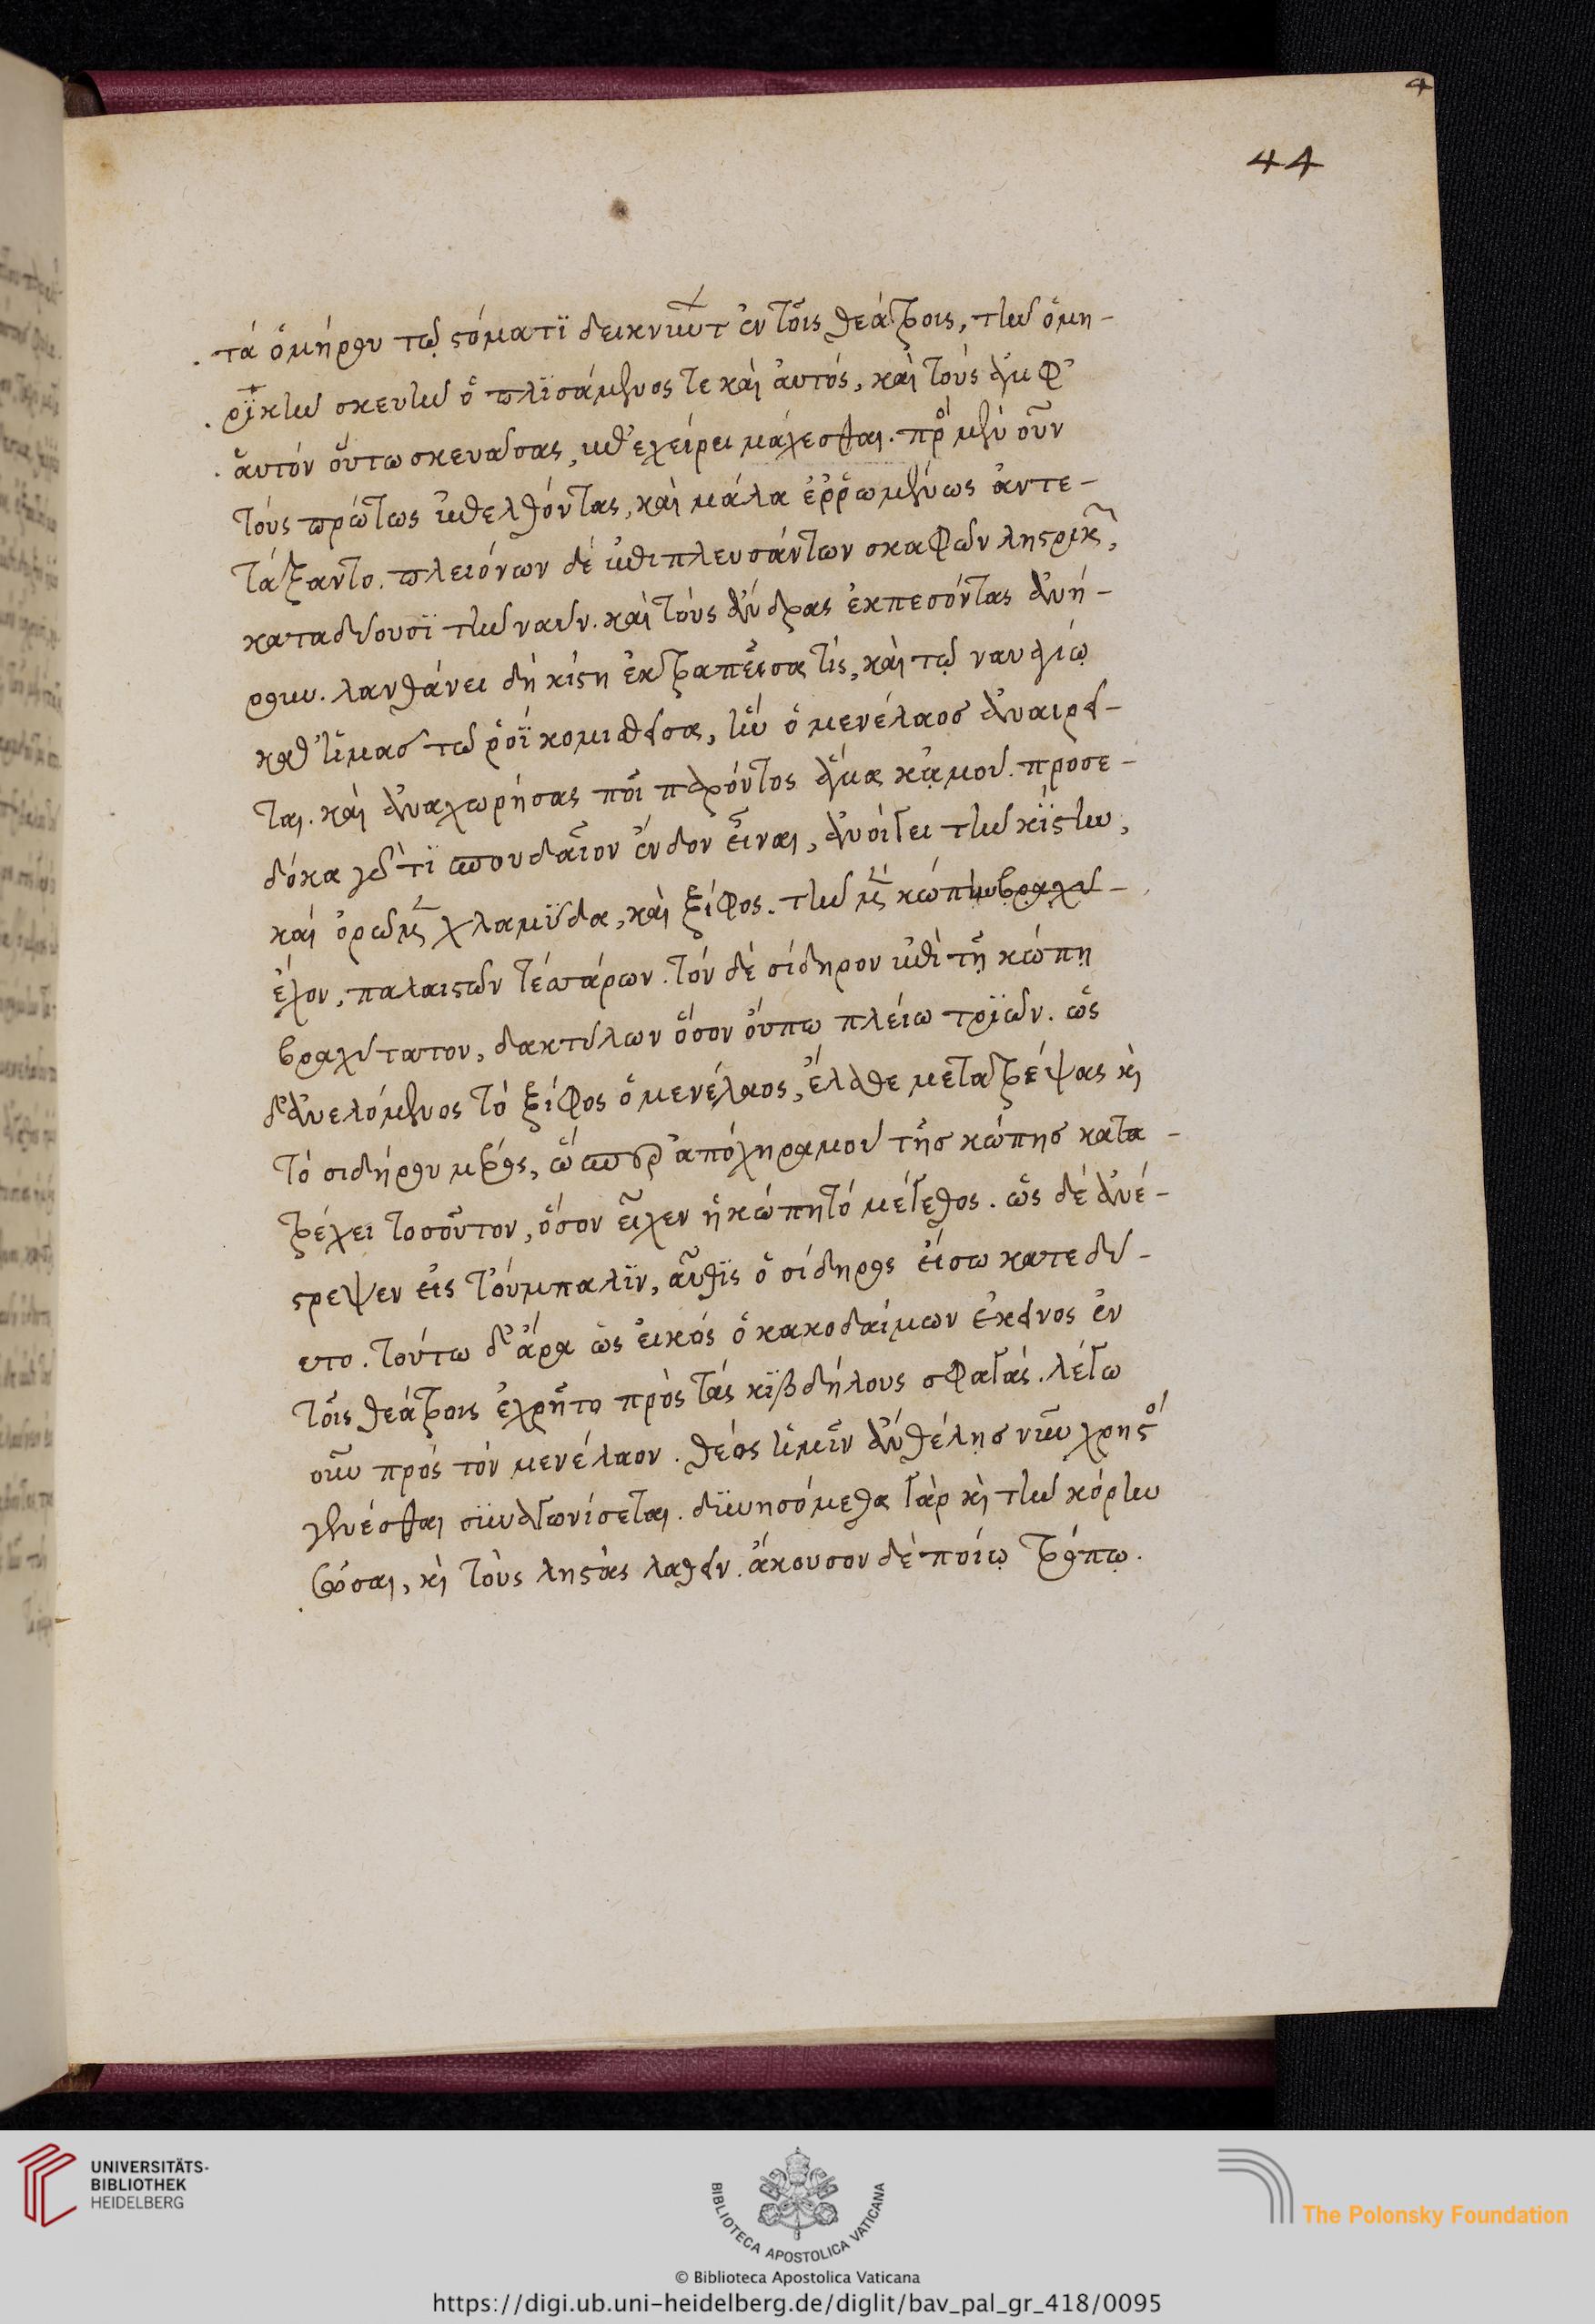 4
44
τὰ ὁμήρου τῷ στόματϊ δεικνύντ ἐν τοῖς θεάτροις, τὴν ὁμη-
ρϊκὴν σκευὴν ὁπλϊσάμενος τε καὶ ἀυτός, καὶ τοὺς ἀμφ'
ἁυτὸν οὕτω σκευάσας, ἐπεχείρει μάχεσθαι. πρὸ μὲν οὖν
τοὺς πρώτως ἐπελθόντας, καὶ μάλα ἐρρωμένως ἀντε-
τάξαντο. πλειόνων δὲ ἐπιπλευσάντων σκαφῶν ληστρικ,
καταδύουσϊ τὴν ναῦν. καὶ τοὺς ἄνδρας ἐκπεσόντας ἀνή-
ρουν. λανθάνει δὴ κίστη ἐκτραπεῖσα τίς, καὶ τῷ ναυαγίῳ
καθ' ἡμᾶσ τῶ ῥόϊ κομισθεῖσα, ἣν ὁ μενέλαοσ ἀναιρεῖ-
ται. καὶ ἀναχωρήσας ποῖ παρόντος ἅμα κᾀμοῦ. προσε-
δόκα γάρ τϊ σπουδαῖον ἔνδον εἶναι, ἀνοίγει τὴν κϊστην,
καὶ ὁρῶμεν χλαμύδα, καὶ ξίφος. τὴν μὲν κώπην βραχυ-
ἔχον, παλαιστῶν τεσσάρων. τὸν δὲ σίδηρον ἐπὶ τῇ κώπῃ
βραχύτατον, δακτύλων ὅσον οὔπω πλείω τρϊῶν. ὡς
δ' ἀνελόμενος τὸ ξίφος ὁ μενέλαος, ἔλαθε μεταστρέψας κὶ
τὸ σιδήρου μέρος, ὥσπερ ἀπόχηραμοῦ τῆσ κώπησ κατα-
τρέχει τοσοῦτον, ὅσον εἶχεν ἡ κώπη τὸ μέγεθος. ὡς δὲ ἀνέ-
στρεψεν εἰς τούμπαλϊν, αὖθϊς ὁ σίδηρος εἴσω κατεδύ-
ετο. τούτω δ' ἄρα ὡς εἰκός ὁ κακοδαίμων ἐκεῖνος ἐν
τοῖς θεάτροις ἐχρῆτο πρὸς τὰς κϊβδήλους σφαγάς. λέγω
οὖν πρὸς τὸν μενέλαον. θέος ἡμῖν ἂν θέλησ νῦν χρηστὸ
γενέσθαι σϋναγωνίσεται. δϋνησόμεθα γὰρ κὶ τὴν κόρην
σῶσαι, κὶ τοὺς ληστὰς λαθεῖν. ἄκουσον δὲ ποίῳ τρόπῳ.
UNIVERSITÄTS-
BIBLIOTHEK
HEIDELBERG
BIBLIOTECA APOSTOLICA VATICANA
The Polonsky Foundation
© Biblioteca Apostolica Vaticana
https://digi.ub.uni-heidelberg.de/diglit/bav_pal_gr_418/0095